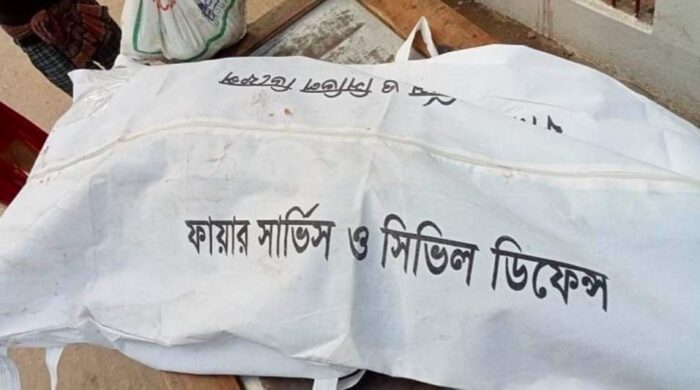 ও সিভিল ডিফেন্স
ফায়ার সার্ভিস ও সিভিল ডিফেন্স